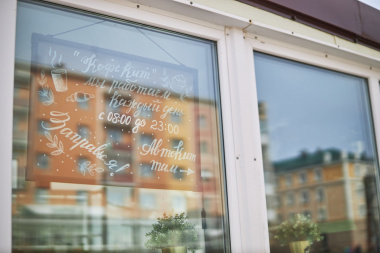 "Кофекит"
мы работаем
каждый день
с 08:00 до 23:00
Заправься!
Автокит
там